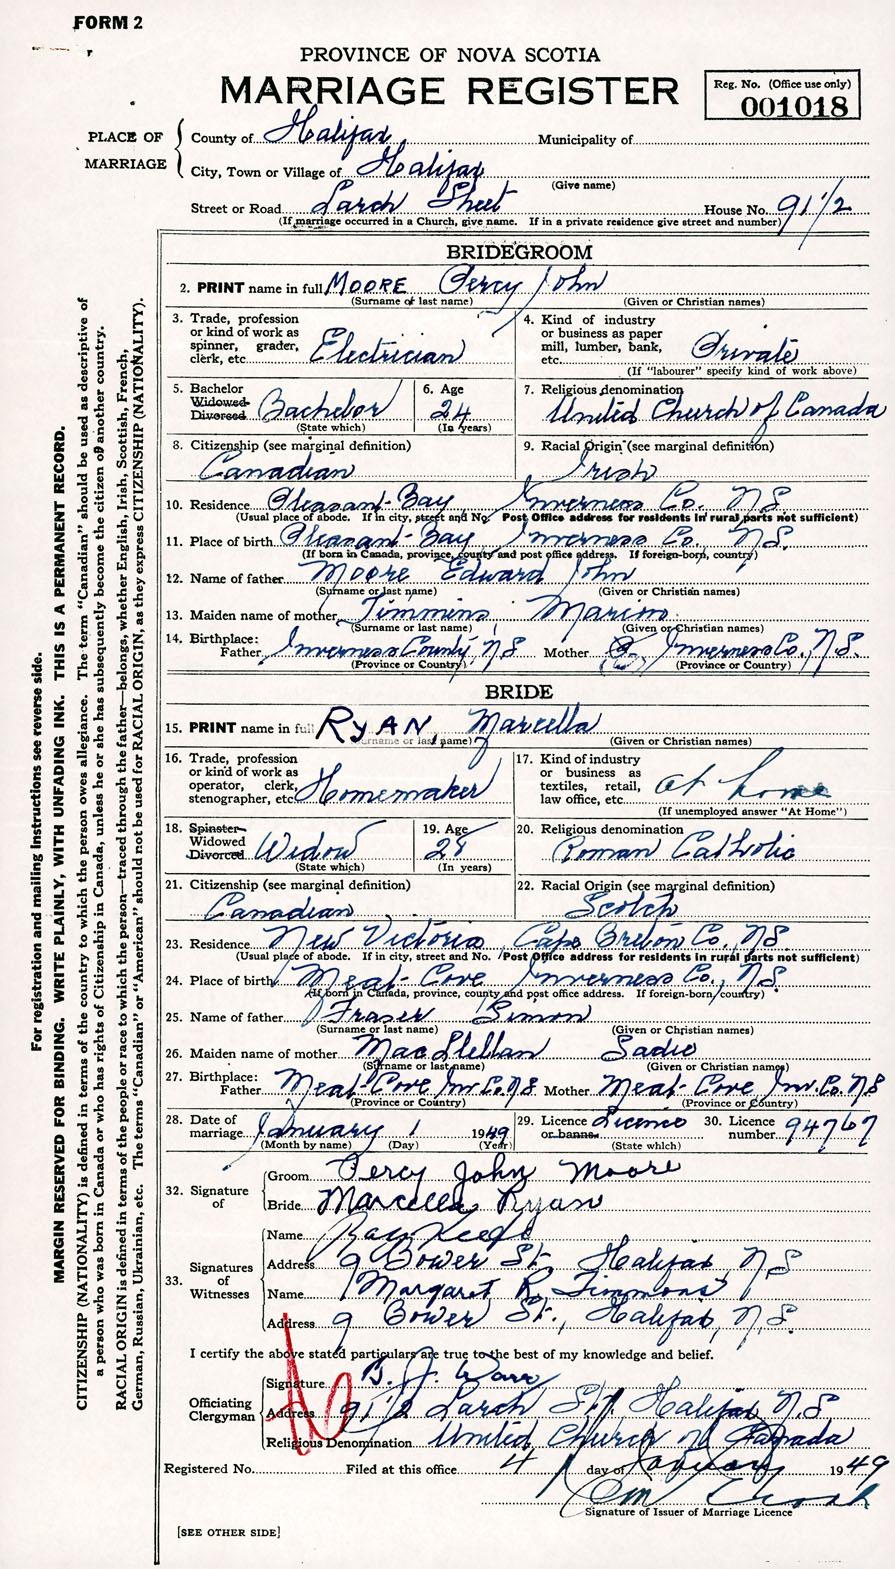 FORM 2
PROVINCE OF NOVA SCOTIA
MARRIAGE REGISTER
Reg. No. (Office use only)
001018
PLACE OF MARRIAGE
County of Halifax Municipality of
City, Town or Village of Halifax
(Give name)
Street or Road Larch Street House No. 91 1/2
(If marriage occurred in a Church, give name. If in a private residence give street and number)
BRIDEGROOM
2. PRINT name in full MOORE Percy John
(Surname or last name) (Given or Christian names)
3. Trade, profession or kind of work as spinner, grader, clerk, etc. Electrician
4. Kind of industry or business as paper mill, lumber, bank, etc. Private
(If "labourer" specify kind of work above)
5. Bachelor Widowed Divorced Bachelor
(State which)
6. Age 24
(In years)
7. Religious denomination
United Church of Canada
8. Citizenship (see marginal definition)
Canadian
9. Racial Origin (see marginal definition)
Irish
10. Residence Pleasant Bay Inverness Co. N.S.
(Usual place of abode. If in city, street and No. Post Office address for residents in rural parts not sufficient)
11. Place of birth Pleasant Bay Inverness Co. N.S.
(If born in Canada, province, county and post office address. If foreign-born, country)
12. Name of father Moore Edward John
(Surname or last name) (Given or Christian names)
13. Maiden name of mother Timmins, Marion
(Surname or last name) (Given or Christian names)
14. Birthplace: Father Inverness County, N.S. Mother Inverness Co., N.S.
(Province or Country) (Province or Country)
BRIDE
15. PRINT name in full RYAN, Marcella
(Surname or last name) (Given or Christian names)
16. Trade, profession or kind of work as operator, clerk, stenographer, etc. Homemaker
17. Kind of industry or business as textiles, retail, law office, etc. at home
(If unemployed answer "At Home")
18. Spinster Widowed Divorced Widow
(State which)
19. Age
(In years)
20. Religious denomination
Roman Catholic
21. Citizenship (see marginal definition)
Canadian
22. Racial Origin (see marginal definition)
Scotch
23. Residence New Victoria, Cape Breton Co., N.S.
(Usual place of abode. If in city, street and No. Post Office address for residents in rural parts not sufficient)
24. Place of birth Meat Cove Inverness Co., N.S.
(If born in Canada, province, county and post office address. If foreign-born, country)
25. Name of father Fraser Simon
(Surname or last name) (Given or Christian names)
26. Maiden name of mother MacLellan Sadie
(Surname or last name) (Given or Christian names)
27. Birthplace: Father Meat Cove Inv. Co. N S Mother Meat Cove Inv. Co. N S
(Province or Country) (Province or Country)
28. Date of marriage January 1 1949
(Month by name) (Day) (Year)
29. Licence or banns Licence
(State which)
30. Licence number 94767
32. Signature of
Groom Percy John Moore
Bride Marcella Ryan
33. Signatures of Witnesses
Name
Address 9 Bower St. Halifax, N.S
Name Margaret R. Timmons
Address 9 Bower St., Halifax, N.S.
I certify the above stated particulars are true to the best of my knowledge and belief.
Officiating Clergyman
Signature
Address 91 1/2 Larch St. Halifax N.S
Religious Denomination United Church of Canada
Registered No. Filed at this office 4 day of January 1949
Signature of Issuer of Marriage Licence
[SEE OTHER SIDE]
For registration and mailing instructions see reverse side.
MARGIN RESERVED FOR BINDING. WRITE PLAINLY, WITH UNFADING INK. THIS IS A PERMANENT RECORD.
CITIZENSHIP (NATIONALITY) is defined in terms of the country to which the person owes allegiance. The term "Canadian" should be used as descriptive of
a person who was born in Canada or who has rights of Citizenship in Canada, unless he or she has subsequently become the citizen of another country.
RACIAL ORIGIN is defined in terms of the people or race to which the person—traced through the father—belongs, whether English, Irish, Scottish, French,
German, Russian, Ukrainian, etc. The terms "Canadian" or "American" should not be used for RACIAL ORIGIN, as they express CITIZENSHIP (NATIONALITY).